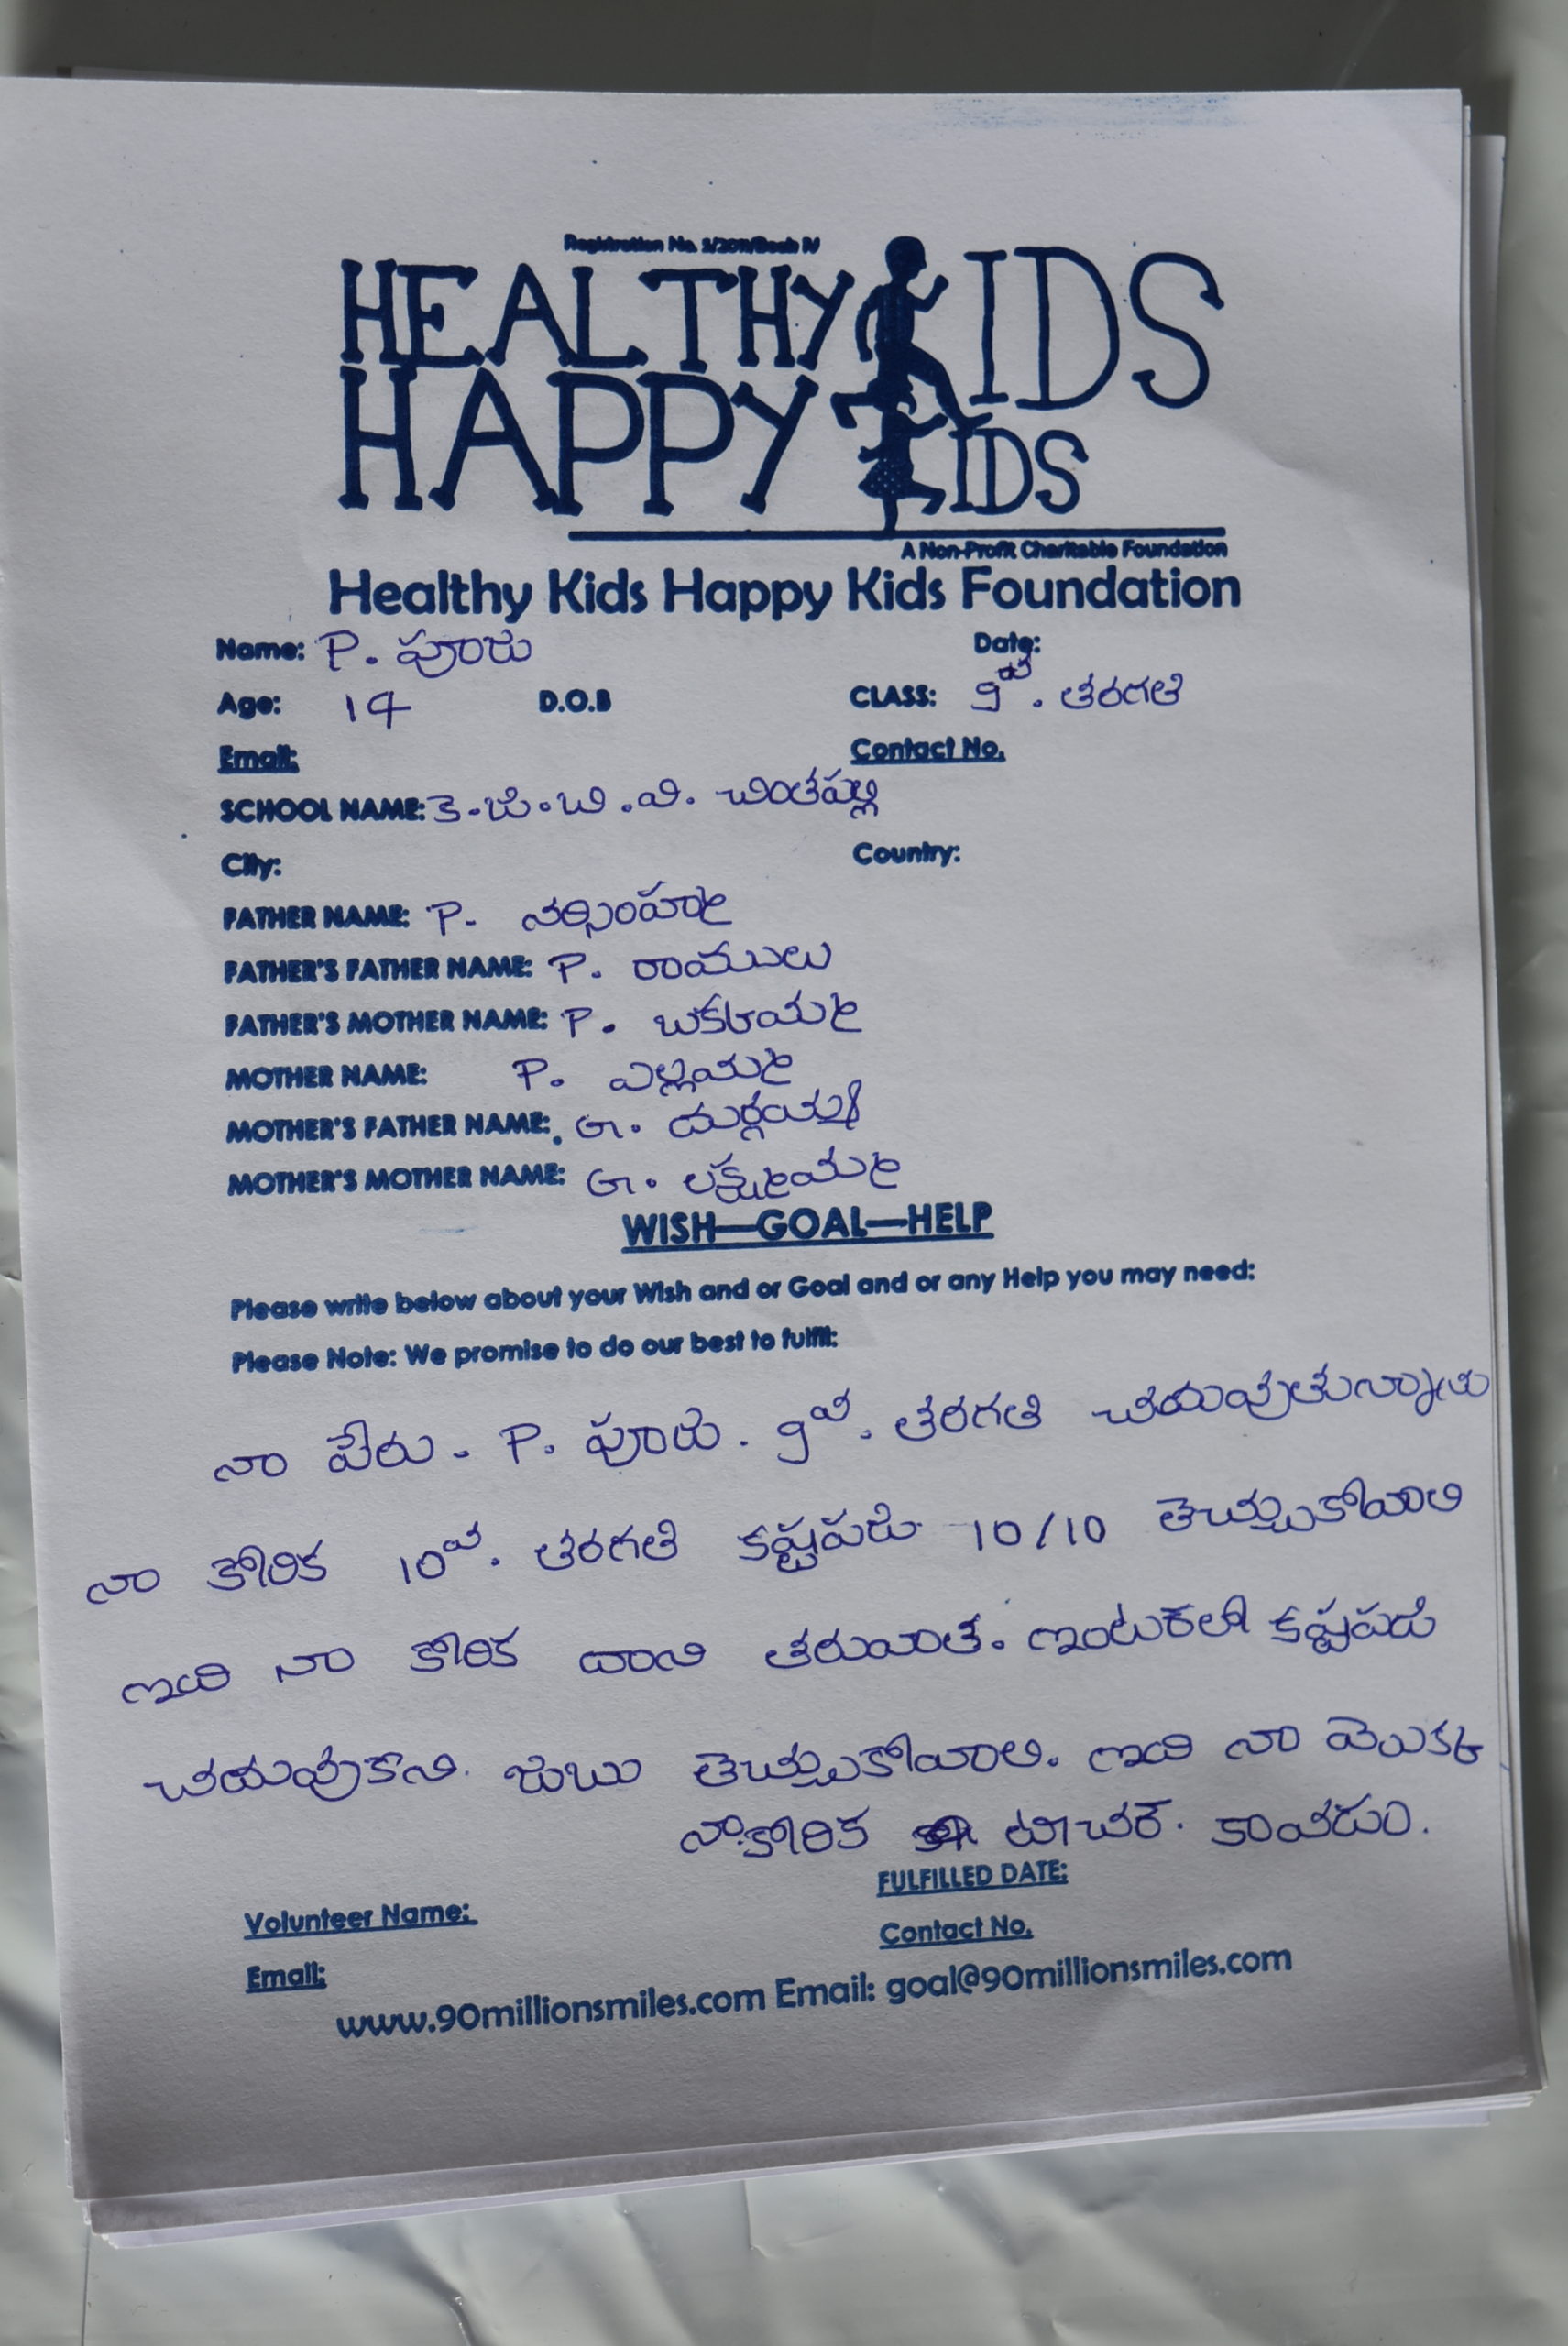 Registration No. 5/2011/Book IV
HEALTHY KIDS
HAPPY KIDS
A Non-Profit Charitable Foundation
Healthy Kids Happy Kids Foundation
Name: P. పూజు Date:
Age: 14 D.O.B CLASS: 9వ. తరగతి
Email: Contact No.
SCHOOL NAME: కె.జి.బి.వి. చింతపల్లి
City: Country:
FATHER NAME: P. నర్సింహ్మ
FATHER'S FATHER NAME: P. రాములు
FATHER'S MOTHER NAME: P. బక్కయమ్మ
MOTHER NAME: P. ఎల్లమ్మ
MOTHER'S FATHER NAME: G. దుర్గయ్య
MOTHER'S MOTHER NAME: G. లక్ష్మమ్మ
WISH—GOAL—HELP
Please write below about your Wish and or Goal and or any Help you may need:
Please Note: We promise to do our best to fulfil:
నా పేరు - P. పూజ. 9వ. తరగతి చదువుతున్నాను
నా కోరిక 10వ. తరగతి కష్టపడి 10/10 తెచ్చుకోవాలి
ఇది నా కోరిక దాని తరువాత. ఇంటుకలో కష్టపడి
చదువుకొని. జబు తెచ్చుకోవాలి. ఇది నా మొక్క
నా.కోరిక టీచర్. కావడం.
FULFILLED DATE:
Volunteer Name: Contact No.
Email:
www.90millionsmiles.com Email: goal@90millionsmiles.com